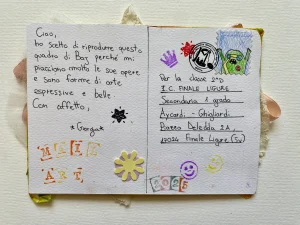 Ciao,
ho scelto di riprodurre questo
quadro di Baj perché mi
piacciono molto le sue opere
e sono forme di arte
espressive e belle.
Con affetto,
MAIL
ART
Per la classe 2ªD
I.C. FINALE LIGURE
Secondaria 1 grado
Aycardi - Ghigliardi
Piazza Deledda 2A,
17024 Finale Ligure (SV)
2025